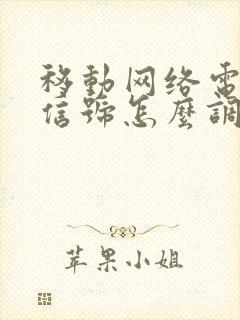 移動网络電
信號怎麼調
苹果小姐